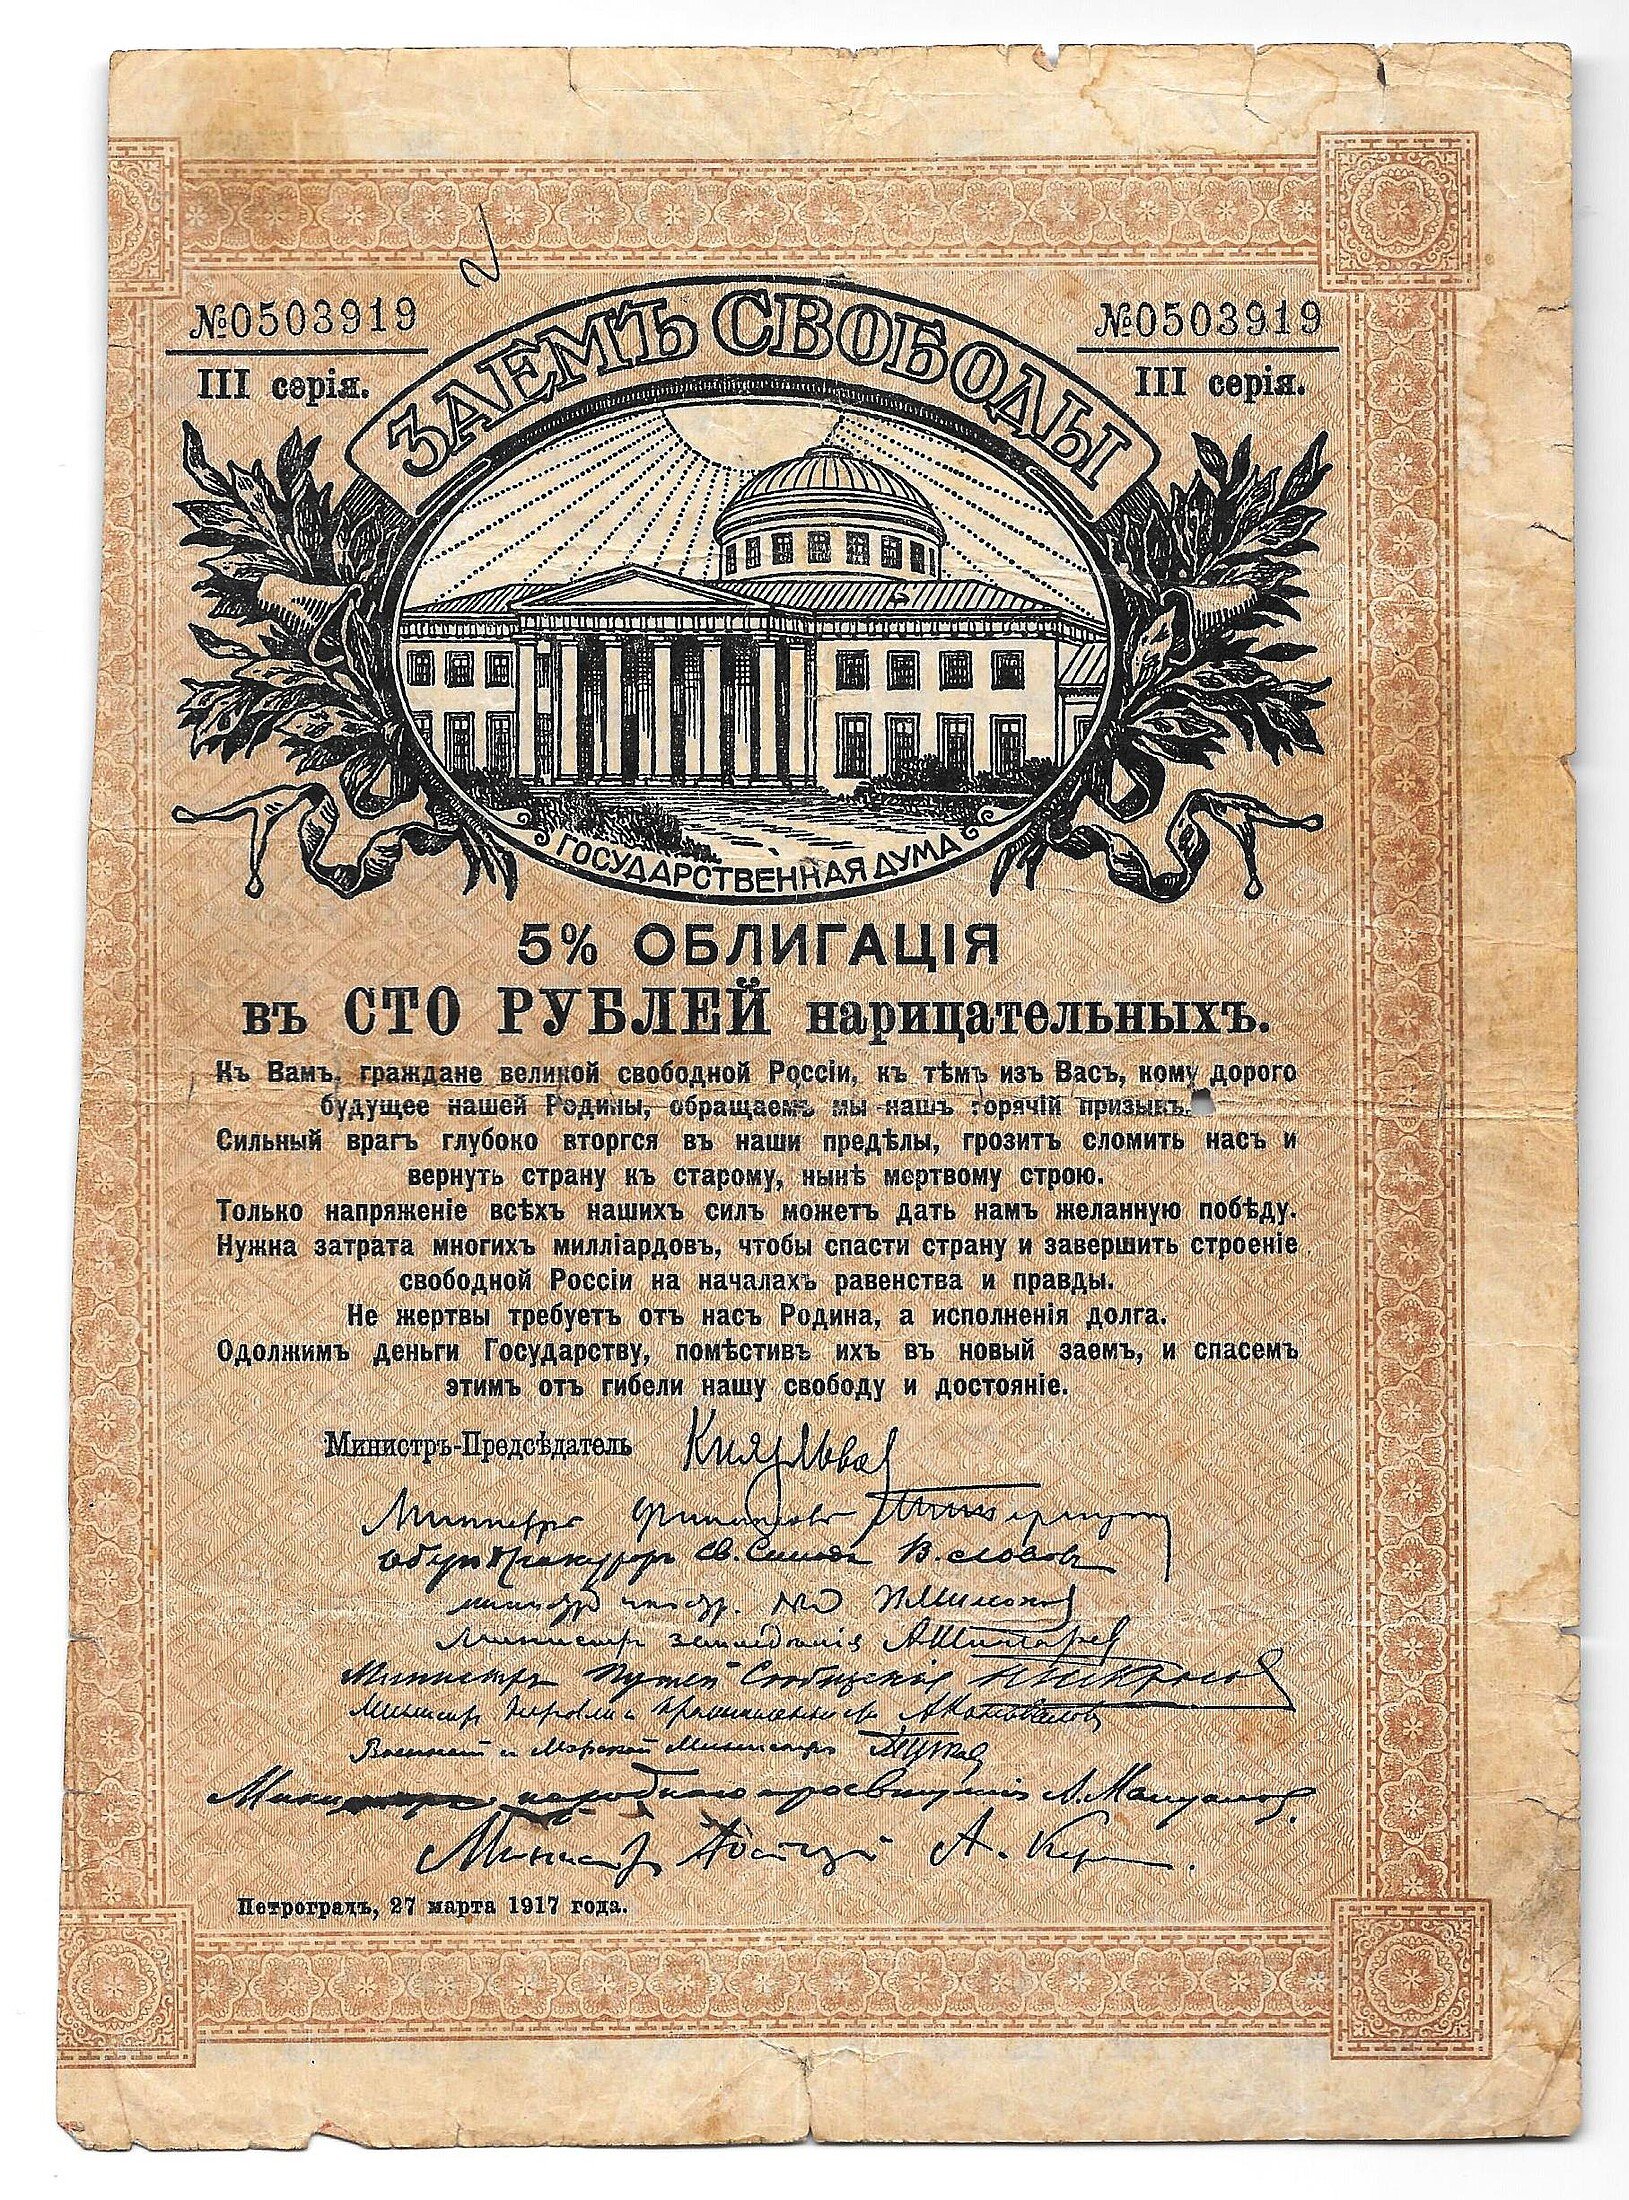 №0503919
№0503919
III серія.
III серія.
ЗАЕМЪ СВОБОДЫ
ГОСУДАРСТВЕННАЯ ДУМА
5% ОБЛИГАЦІЯ
въ СТО РУБЛЕЙ нарицательныхъ.
Къ Вамъ, граждане великой свободной Россіи, къ тѣмъ изъ Васъ, кому дорого
будущее нашей Родины, обращаемъ мы нашъ горячій призывъ.
Сильный врагъ глубоко вторгся въ наши предѣлы, грозитъ сломить насъ и
вернуть страну къ старому, нынѣ мертвому строю.
Только напряженіе всѣхъ нашихъ силъ можетъ дать намъ желанную побѣду.
Нужна затрата многихъ милліардовъ, чтобы спасти страну и завершить строеніе
свободной Россіи на началахъ равенства и правды.
Не жертвы требуетъ отъ насъ Родина, а исполненія долга.
Одолжимъ деньги Государству, помѣстивъ ихъ въ новый заемъ, и спасемъ
этимъ отъ гибели нашу свободу и достояніе.
Министръ-Предсѣдатель Князь Львов
Министръ Финансовъ
Оберъ Прокуроръ Св. Синода В. Львовъ
министр иностр. дѣл П Милюков
Министръ земледѣлія А Шингарев
Министръ Путей Сообщенія Н Некрасов
Министр Торговли и Промышленности А Коновалов
Военный и Морской Министръ Гучков
Министръ народнаго просвѣщенія А. Мануйлов.
Министр Юстиціи А. Керенскій
Петроградъ, 27 марта 1917 года.